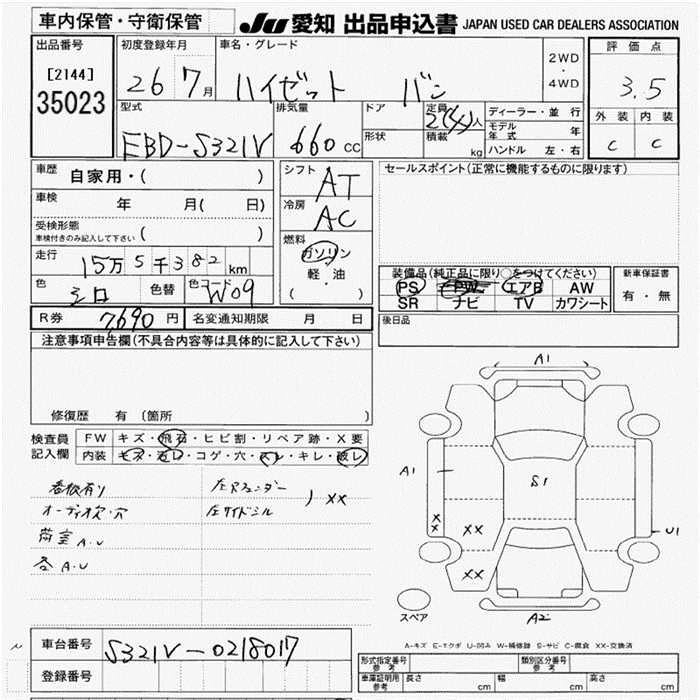 車内保管・守衛保管
JU 愛知 出品申込書 JAPAN USED CAR DEALERS ASSOCIATION
出品番号
[2144]
35023
初度登録年月
26 7月
車名・グレード
ハイゼット バン
2WD
・
4WD
評価点
3.5
外装 内装
C C
型式
EBD-S321V
排気量
660 CC
ドア
形状
定員
2(4)人
積載
kg
ディーラー・並行
モデル年式 年
ハンドル 左・右
車歴
自家用・( )
車検
年 月( 日)
受検形態
車検付きのみ記入して下さい ( )
走行
15万5千382km
色
シロ
色替
色コード
W09
シフト
AT
冷房
AC
燃料
ガソリン
軽・油
( )
セールスポイント(正常に機能するものに限ります)
装備品(純正品に限り○をつけてください)
PS PW エアB AW
SR ナビ TV カワシート
新車保証書
有・無
R券 7,690円
名変通知期限 月 日
後日品
注意事項申告欄(不具合内容等は具体的に記入して下さい)
修復歴 有 (箇所 )
検査員
記入欄
FW キズ・飛石・ヒビ割・リペア跡・X要
内装 キズ・汚レ・コゲ・穴・スレ・キレ・破レ
看板有り
オーディオ欠・穴
荷室 A.U
各 A.U
左Rフェンダー
左サイドシル
) XX
A1
A1
S1
X
X
XX
XX
U1
A2
スペア
A-キズ E-エクボ U-凹み W-補修跡 S-サビ C-腐食 XX-交換済
車台番号
S321V-0218017
登録番号
型式指定番号
参考
類別区分番号
参考
車庫証明用
参考
長さ cm
幅 cm
高さ cm